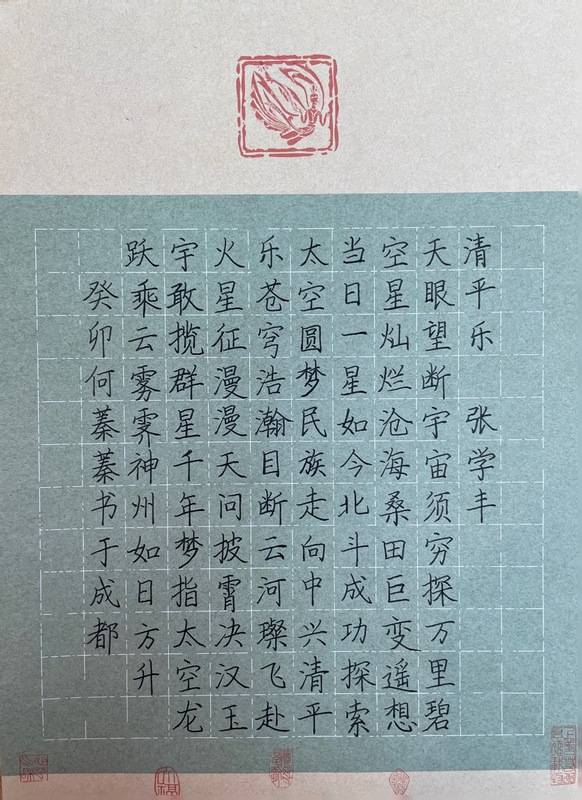 清平乐 张学丰
天眼望断宇宙须穷探万里碧
空星灿烂沧海桑田巨变遥想
当日一星如今北斗成功探索
太空圆梦民族走向中兴清平
乐苍穹浩瀚目断云河璨飞赴
火星征漫漫天问披霄决汉玉
宇敢揽群星千年梦指太空龙
跃乘云雾霁神州如日方升
癸卯何蓁蓁书于成都